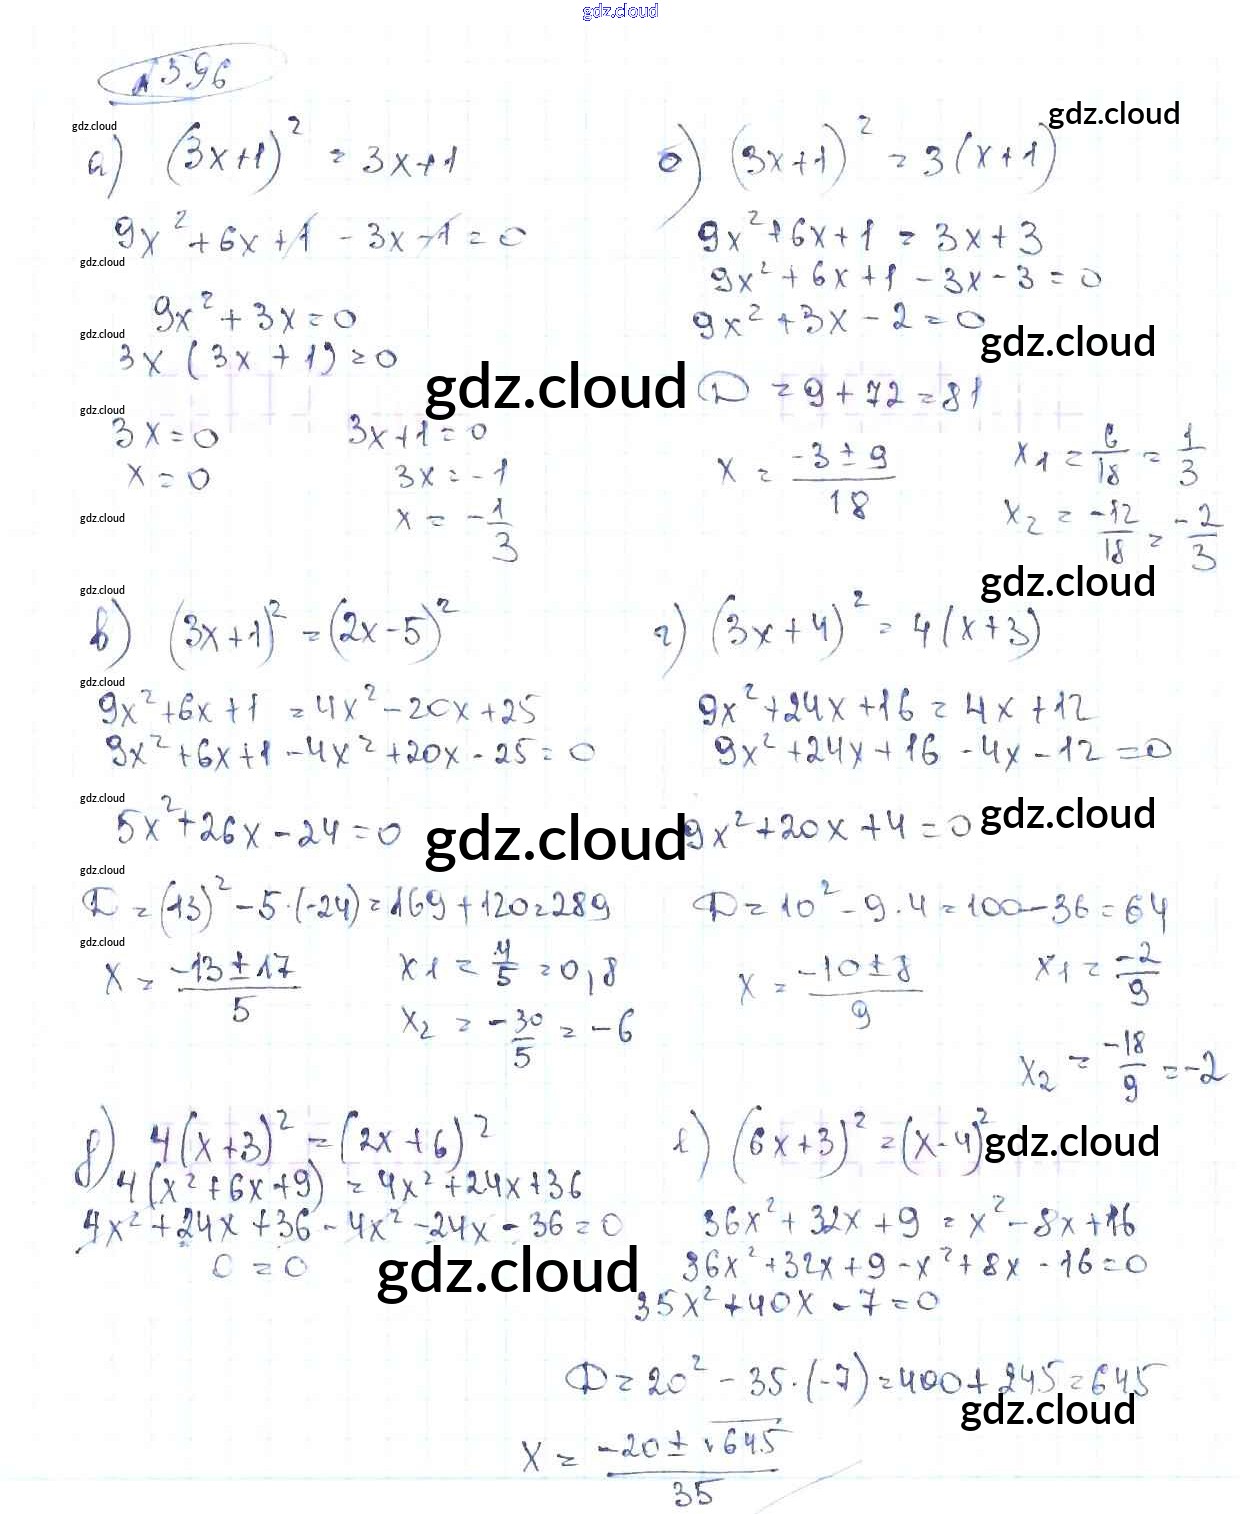 gdz.cloud
№ 596
gdz.cloud
gdz.cloud
а) (3x+1)² = 3x+1
9x² + 6x + 1 - 3x - 1 = 0
gdz.cloud
9x² + 3x = 0
gdz.cloud
3x (3x + 1) = 0
gdz.cloud
gdz.cloud
3x = 0 3x+1 = 0
x = 0 3x = -1
x = -1/3
gdz.cloud
б) (3x+1)² = 3(x+1)
9x² + 6x + 1 = 3x + 3
9x² + 6x + 1 - 3x - 3 = 0
9x² + 3x - 2 = 0
gdz.cloud
D = 9 + 72 = 81
x = (-3 ± 9)/18 x1 = 6/18 = 1/3
x2 = -12/18 = -2/3
gdz.cloud
gdz.cloud
в) (3x+1)² = (2x-5)²
gdz.cloud
9x² + 6x + 1 = 4x² - 20x + 25
9x² + 6x + 1 - 4x² + 20x - 25 = 0
gdz.cloud
5x² + 26x - 24 = 0
gdz.cloud
gdz.cloud
D = (13)² - 5·(-24) = 169 + 120 = 289
gdz.cloud
x = (-13 ± 17)/5 x1 = 4/5 = 0,8
x2 = -30/5 = -6
г) (3x+4)² = 4(x+3)
9x² + 24x + 16 = 4x + 12
9x² + 24x + 16 - 4x - 12 = 0
9x² + 20x + 4 = 0
gdz.cloud
D = 10² - 9·4 = 100 - 36 = 64
x = (-10 ± 8)/9 x1 = -2/9
x2 = -18/9 = -2
д) 4(x+3)² = (2x+6)²
4(x² + 6x + 9) = 4x² + 24x + 36
4x² + 24x + 36 - 4x² - 24x - 36 = 0
0 = 0
gdz.cloud
е) (6x+3)² = (x-4)²
gdz.cloud
36x² + 32x + 9 = x² - 8x + 16
36x² + 32x + 9 - x² + 8x - 16 = 0
35x² + 40x - 7 = 0
D = 20² - 35·(-7) = 400 + 245 = 645
gdz.cloud
x = (-20 ± √645)/35